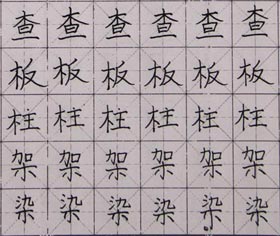 查查查查查查
板板板板板板
柱柱柱柱柱柱
架架架架架架
染染染染染染